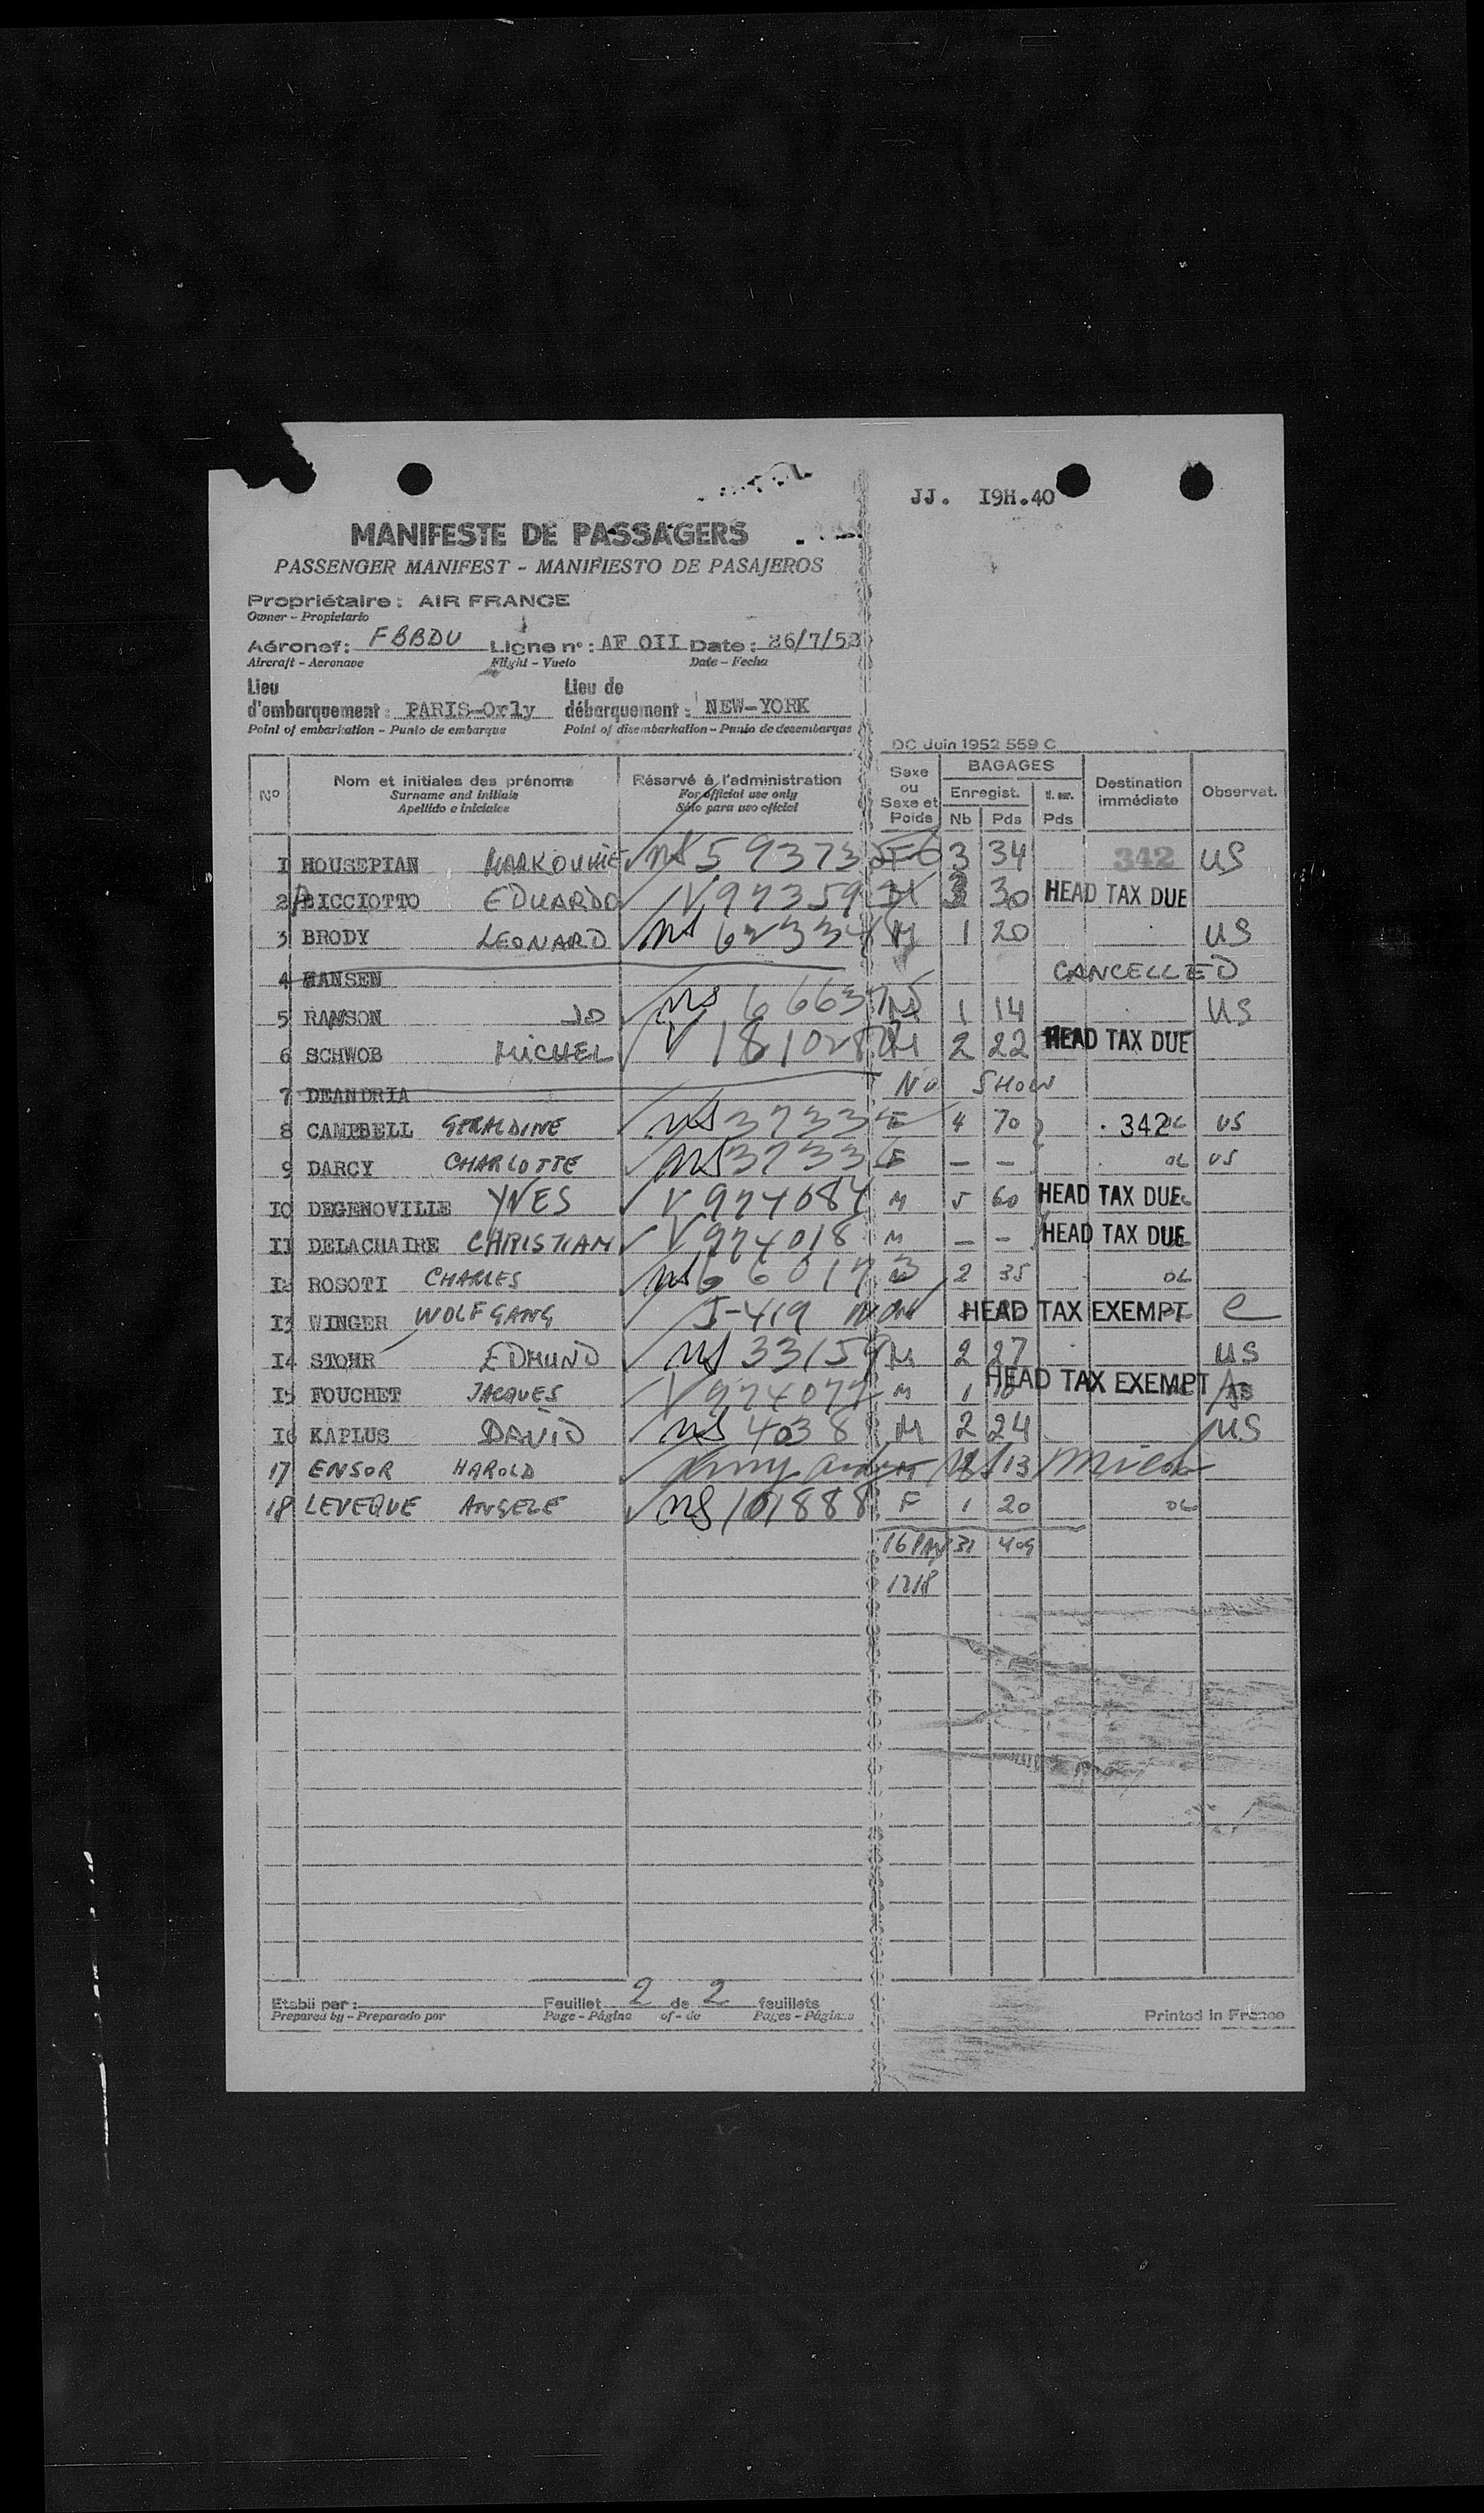 JJ. I9H.40
MANIFESTE DE PASSAGERS
PASSENGER MANIFEST - MANIFIESTO DE PASAJEROS
Propriétaire : AIR FRANCE
Owner - Propietario
Aéronef : FBBDU Ligne n° : AF OII Date : 26/7/52
Aircraft - Aeronave Flight - Vuelo Date - Fecha
Lieu d'embarquement : PARIS-Orly Lieu de débarquement : NEW-YORK
Point of embarkation - Punto de embarque Point of disembarkation - Punto de desembarque
DC Juin 1952 559 C
N° Nom et initiales des prénoms Réservé à l'administration Sexe ou Sexe et Poids BAGAGES Destination immédiate Observat.
Surname and initials For official use only Enregist.
Apellido e iniciales Sólo para uso oficial Nb Pds Pds
1 HOUSEPIAN 3 34 342 US
2 BICCIOTTO EDUARDO V 30 HEAD TAX DUE
3 BRODY LEONARD M 1 20 US
4 HANSEN CANCELLED
5 RAWSON JO M 1 14 US
6 SCHWOB MICHEL V M 2 22 HEAD TAX DUE
7 DEANDRIA NO SHOW
8 CAMPBELL GERALDINE F 4 70 342 US
9 DARCY CHARLOTTE F — — US
10 DEGENOVILLE YVES V 974084 M 5 60 HEAD TAX DUE
11 DELACHAIRE CHRISTIAN V 974018 M — — HEAD TAX DUE
12 ROSOTI CHARLES 2 35
13 WINGER WOLFGANG J-419 HEAD TAX EXEMPT
14 STOHR EDMUND M 2 27 US
15 FOUCHET JACQUES V 974077 M 1 HEAD TAX EXEMPT
16 KAPLUS DAVID 4038 M 2 24 US
17 ENSOR HAROLD 13
18 LEVEQUE ANGELE 101888 F 1 20
31 409
Etabli par : Feuillet 2 de 2 feuillets
Prepared by - Preparado por Page - Página of - de Pages - Páginas
Printed in France